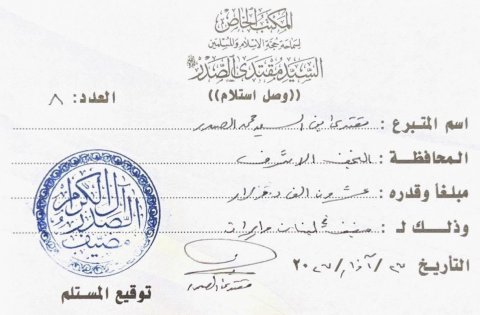 المكتب الخاص
لسماحة حجة الاسلام والمسلمين
السيد مقتدى الصدر
((وصل استلام))
العدد: ٨
اسم المتبرع : مقتدى ابن السيد محمد الصدر
المحافظة : النجف الاشرف
مبلغا وقدره : عشرون الف دولار
وذلك لـ : ضيف لبنان وايران
التأريخ ٢٣ / آذار / ٢٠٢٦
مقتدى الصدر
توقيع المستلم
آل الصدر الكرام
مضيف